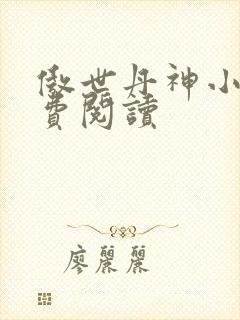 傲世丹神小
費閱讀
廖麗麗